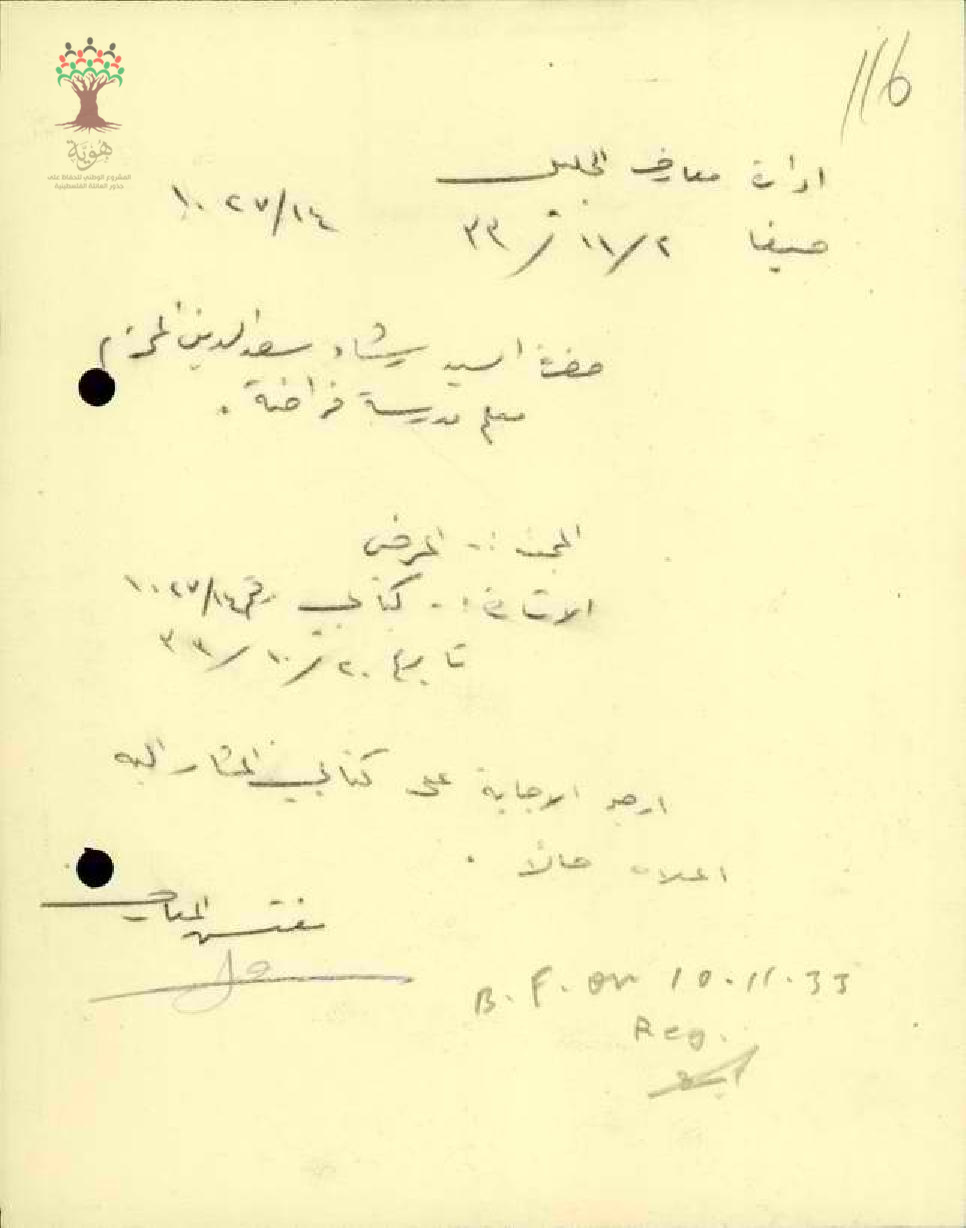 116
هوية
المشروع الوطني للحفاظ على
جذور العائلة الفلسطينية
ادارة معارف الجليل
حيفا ٢/١١/٣٣ ١٠٢٧/١٤
حضرة السيد رشاد سعد الدين المحترم
معلم مدرسة فراضية .
المبحث :- المرض
الاشارة :- كتابي رقم ١٠٢٧/١٤
تاريخ ٢٠/١٠/٣٣
ارجو الاجابة على كتابي المشار اليه
اعلاه حالاً .
مفتش المعارف
B. F. on 10.11.33
Reg.